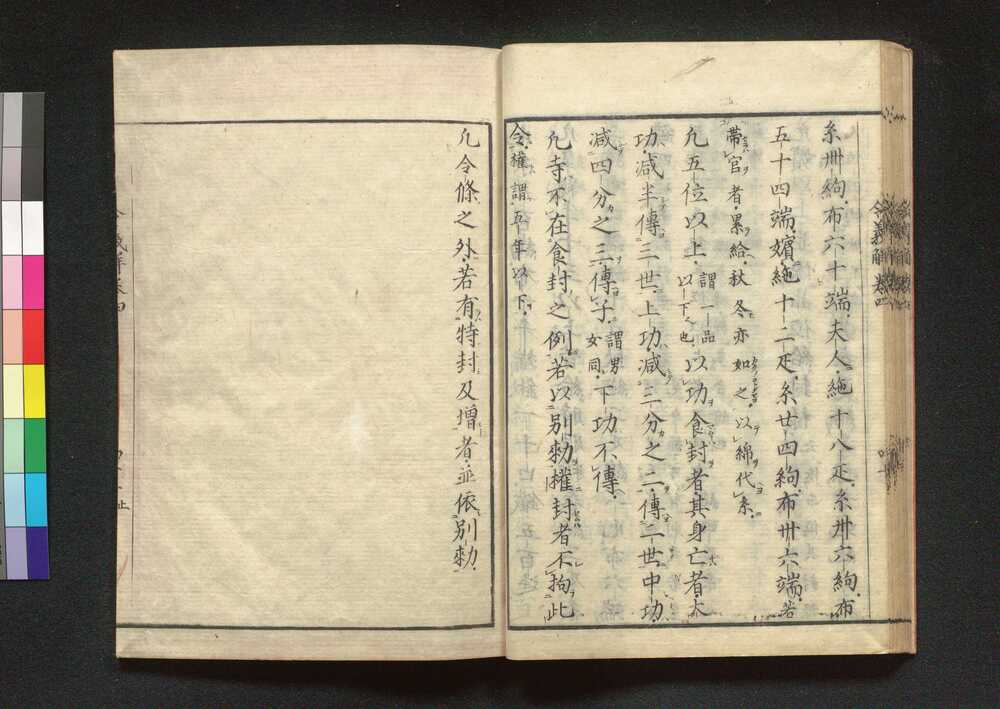 糸卌絇布六十端夫人絁十八疋糸卅六絇布
五十四端嬪絁十二疋糸廿四絇布卅六端若
帯官者累給秋冬亦如之以綿代糸
凢五位以上謂一品以下也以功食封者其身亡者大
功減半傳三世上功減三分之二傳二世中功
減四分之三傳子謂男女同下功不傳
凢寺不在食封之例若以別勅権封者不拘此
令権謂五年以下
凢令條之外若有特封及増者並依別勅
令義解 巻四